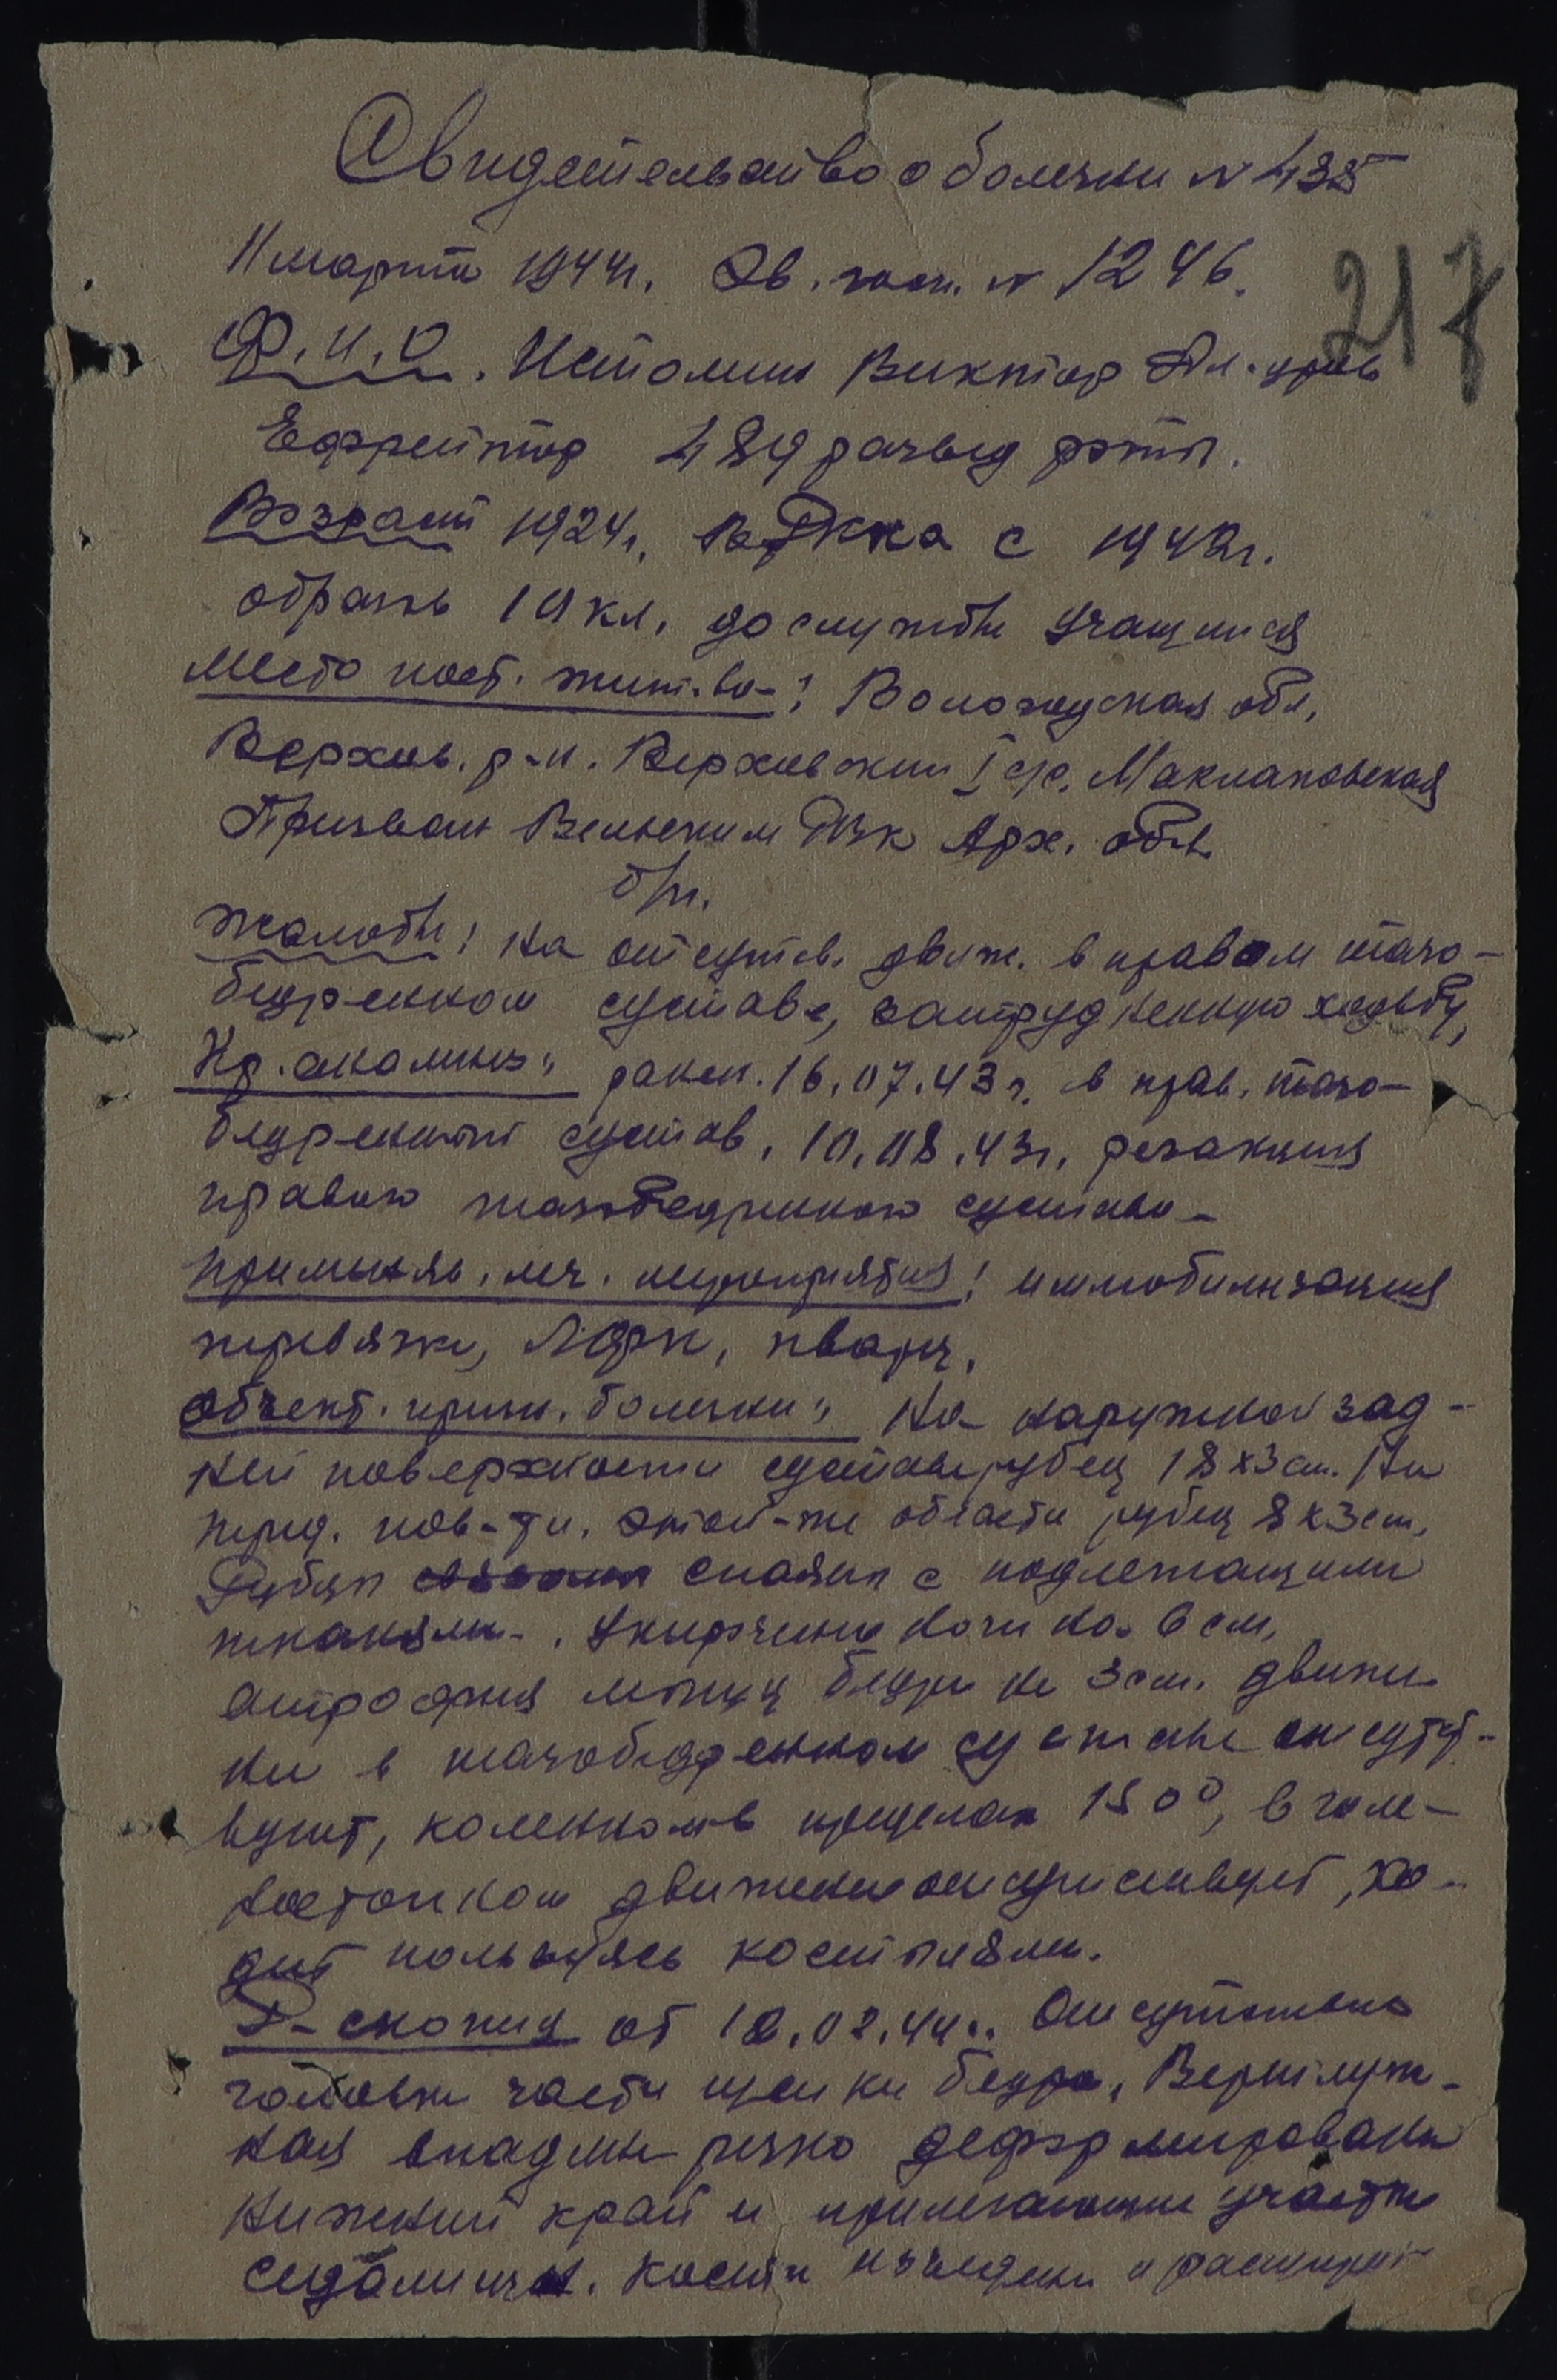 Свидетельство о болезни № 435
11 марта 1944г. Эв. госп. № 1246.
217
Ф.И.О. Истомин Виктор Ал-дров
Ефрейтор 489 развед роты.
Возраст 1924г. в РККА с 1942г.
образов 10 кл. до службы учащийся
Место пост. жит-ва: Вологодская обл,
Верхов. р-н. Верховский I с/с. Маклаковская
Призван Вельским РВК Арх. обл.
б/п.
Жалобы: на отсутств. движ. в правом тазо-
бедренном суставе, затрудненную ходьбу,
Кр. анамнез: ранен. 16.07.43г. в прав. тазо-
бедренный сустав, 10.08.43г. резекция
правого тазобедренного сустава-
Применяв. леч. мероприятия: иммобилизация
перевязки, ЛФК, кварц.
Объект. призн. болезни: На наружной зад-
ней поверхности сустава рубец 18х3см. На
перед. пов-ти. этой-же области рубец 8х3см,
Рубцы спаяны с подлежащими
тканями. Укорочение ноги на 6 см,
атрофия мышц бедра на 3см. движе
ния в тазобедренном суставе отсутст-
вуют, коленном в пределах 150°, в голе-
ностопном движение отсутствует, хо-
дит пользуясь костылями.
Р-скопия от 12.02.44г. Отсутствие
головки части шейки бедра, Вертлуж-
ная впадина резко деформирована
нижний край и прилегающие участки
седалищн. кости изъедены и расширен